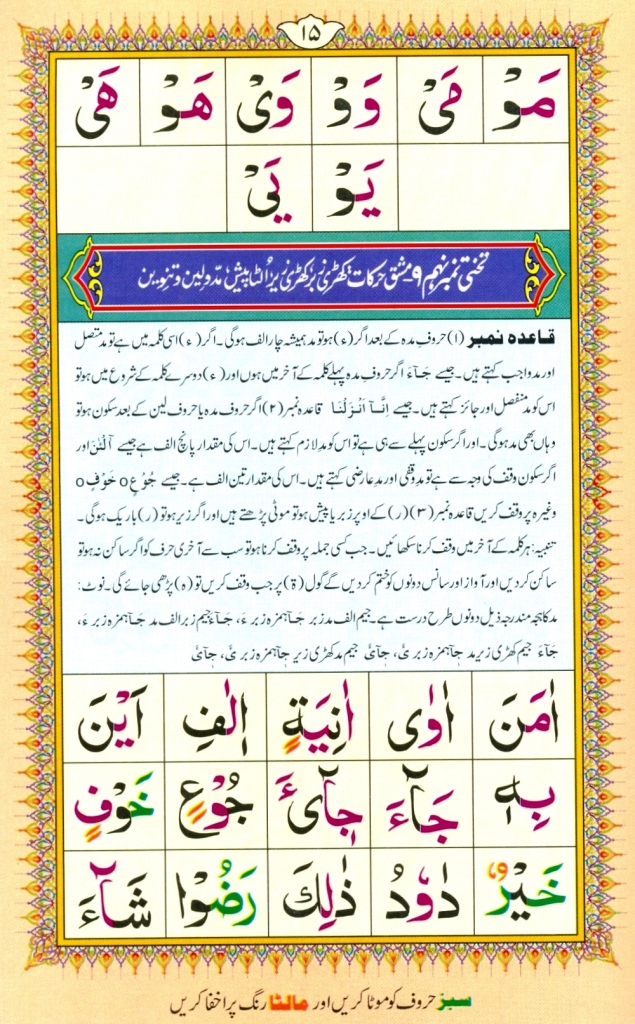 ۱۵
مَوْ مَیْ وَوْ وَیْ هَوْ هَیْ
یَوْ یَیْ
تختی نمبر نہم ۹۔ مشق حرکات: کھڑی زبر کھڑی زیر اُلٹا پیش، مدّ و لین و تنوین
قاعدہ نمبر (۱) حروفِ مدہ کے بعد اگر (ء) ہو تو مد ہمیشہ چار الف ہوگی۔ اگر (ء) اسی کلمہ میں ہے تو مد متصل
اور مد واجب کہتے ہیں۔ جیسے جَآءَ اگر حروفِ مدہ پہلے کلمہ کے آخر میں ہوں اور (ء) دوسرے کلمہ کے شروع میں ہو تو
اس کو مد منفصل اور جائز کہتے ہیں۔ جیسے اِنَّآ اَنْزَلْنَا قاعدہ نمبر (۲) اگر حروفِ مدہ یا حروفِ لین کے بعد سکون ہو تو
وہاں بھی مد ہوگی۔ اور اگر سکون پہلے سے ہی ہے تو اس کو مد لازم کہتے ہیں۔ اس کی مقدار پانچ الف ہے جیسے آلْئٰنَ اور
اگر سکون وقف کی وجہ سے ہے تو مد وقفی اور مد عارضی کہتے ہیں۔ اس کی مقدار تین الف ہے۔ جیسے جُوْعٍ o خَوْفٍ o
وغیرہ پر وقف کریں قاعدہ نمبر (۳) (ر) کے اوپر زبر یا پیش ہو تو موٹی پڑھتے ہیں اور اگر زیر ہو تو (ر) باریک ہوگی۔
تنبیہ: ہر کلمہ کے آخر میں وقف کرنا سکھائیں۔ جب کسی جملہ پر وقف کرنا ہو تو سب سے آخری حرف کو اگر ساکن نہ ہو تو
ساکن کردیں اور آواز اور سانس دونوں کو ختم کردیں گے گول (ة) پر جب وقف کریں تو (ہ) پڑھی جائے گی۔ نوٹ:
مد کا ہجہ مندرجہ ذیل دونوں طرح درست ہے۔ جیم الف مد زبر جَآ ہمزہ زبر ءَ، جَآءَ جیم زبر الف مد جَآ ہمزہ زبر ءَ،
جَآءَ جیم کھڑی زیر مد جِآ ہمزہ زبر یْٓءَ، جِآیْٓءَ جیم مد کھڑی زیر جِآ ہمزہ زبر یْٓءَ، جِآیْٓءَ
اٰمَنَ اٰوٰی اٰنِیَةٍ اٖلٰفِ اَیْنَ
بِهٖ جَآءَ جِآیْٓءَ جُوْعٍ خَوْفٍ
خَیْرٌ دَاوٗدُ ذٰلِكَ رَضُوْا شَآءَ
سبز حروف کو موٹا کریں اور مالٹا رنگ پر اخفا کریں